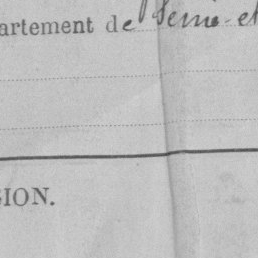 artement de Seine-et
GION.